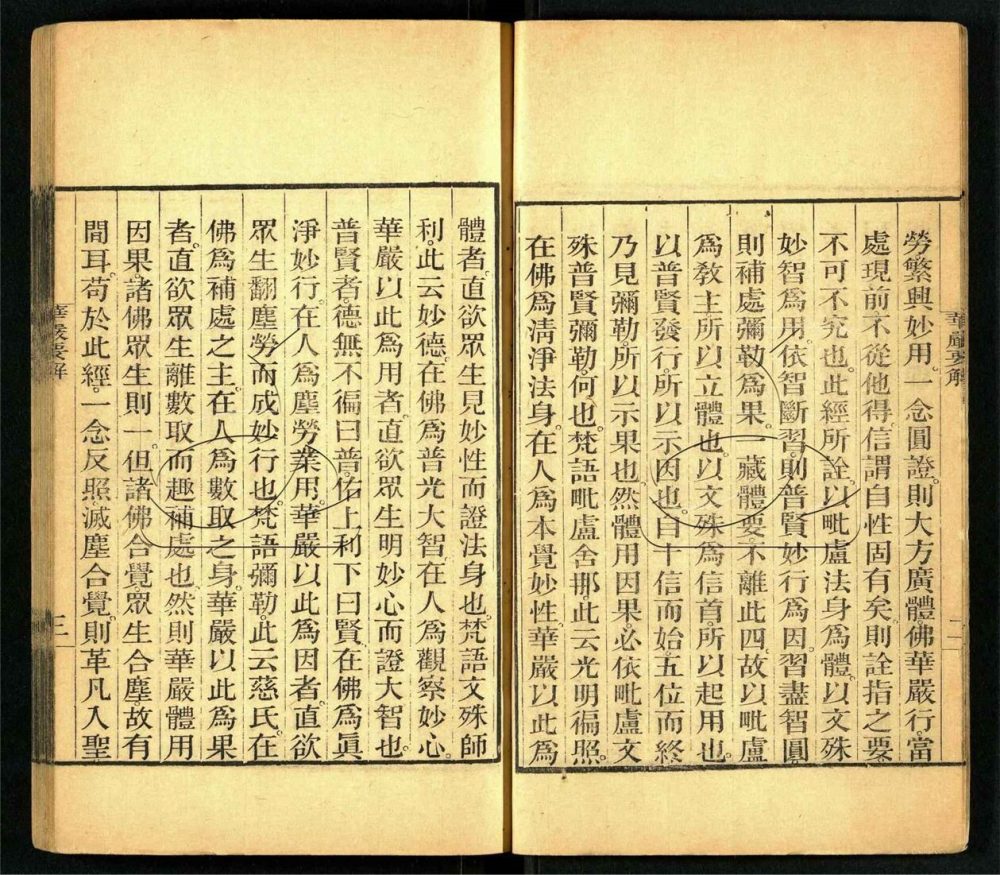 華嚴要解
二
勞繁興妙用。一念圓證。則大方廣體佛華嚴行。當
處現前。不從他得。信謂自性固有矣。則詮指之要。
不可不究也。此經所詮。以毗盧法身爲體。以文殊
妙智爲用。依智斷習。則普賢妙行爲因。習盡智圓。
則補處彌勒爲果。一藏體要。不離此四。故以毗盧
爲教主。所以立體也。以文殊爲信首。所以起用也。
以普賢發行。所以示因也。自十信而始。五位而終。
乃見彌勒。所以示果也。然體用因果。必依毗盧文
殊普賢彌勒。何也。梵語毗盧舍那。此云光明徧照。
在佛爲淸淨法身。在人爲本覺妙性。華嚴以此爲
體者。直欲眾生見妙性而證法身也。梵語文殊師
利。此云妙德。在佛爲普光大智。在人爲觀察妙心。
華嚴以此爲用者。直欲眾生明妙心而證大智也。
普賢者。德無不徧曰普。佑上利下曰賢。在佛爲眞
淨妙行。在人爲塵勞業用。華嚴以此爲因者。直欲
眾生翻塵勞而成妙行也。梵語彌勒。此云慈氏。在
佛爲補處之主。在人爲數取之身。華嚴以此爲果
者。直欲眾生離數取而趣補處也。然則華嚴體用
因果。諸佛眾生則一。但諸佛合覺。眾生合塵。故有
間耳。苟於此經。一念反照。滅塵合覺。則革凡入聖
華嚴要解
三